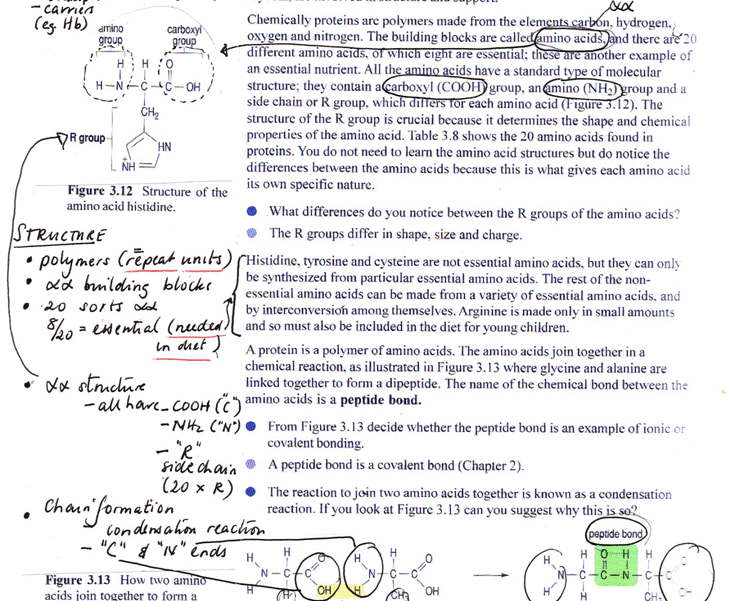 - carriers
(eg. Hb)
amino
group
carboxyl
group
H H O
H—N—C—C—OH
CH₂
R group
HN
NH
+
Figure 3.12 Structure of the
amino acid histidine.
αα
Chemically proteins are polymers made from the elements carbon, hydrogen,
oxygen and nitrogen. The building blocks are called amino acids, and there are 20
different amino acids, of which eight are essential; these are another example of
an essential nutrient. All the amino acids have a standard type of molecular
structure; they contain a carboxyl (COOH) group, an amino (NH₂) group and a
side chain or R group, which differs for each amino acid (Figure 3.12). The
structure of the R group is crucial because it determines the shape and chemical
properties of the amino acid. Table 3.8 shows the 20 amino acids found in
proteins. You do not need to learn the amino acid structures but do notice the
differences between the amino acids because this is what gives each amino acid
its own specific nature.
What differences do you notice between the R groups of the amino acids?
The R groups differ in shape, size and charge.
Histidine, tyrosine and cysteine are not essential amino acids, but they can only
be synthesized from particular essential amino acids. The rest of the non-
essential amino acids can be made from a variety of essential amino acids, and
by interconversion among themselves. Arginine is made only in small amounts
and so must also be included in the diet for young children.
A protein is a polymer of amino acids. The amino acids join together in a
chemical reaction, as illustrated in Figure 3.13 where glycine and alanine are
linked together to form a dipeptide. The name of the chemical bond between the
amino acids is a peptide bond.
From Figure 3.13 decide whether the peptide bond is an example of ionic or
covalent bonding.
A peptide bond is a covalent bond (Chapter 2).
The reaction to join two amino acids together is known as a condensation
reaction. If you look at Figure 3.13 can you suggest why this is so?
STRUCTURE
• polymers (= repeat units)
• αα building blocks
• 20 sorts αα
8/20 = essential (needed
in diet)
• αα structure
- all have - COOH ("C")
- NH₂ ("N")
- "R"
side chain
(20 x R)
• Chain formation
condensation reaction
- "C" & "N" ends
peptide bond
H H O H H O
N—C—C N—C—C
H OH H OH
H CH₃
H H O H H O
N—C—C—N—C—C
H
Figure 3.13 How two amino
acids join together to form a